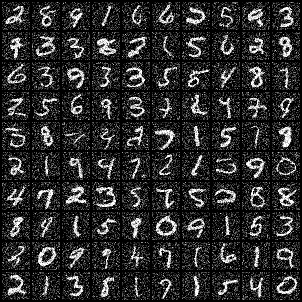 2 8 9 1 6 6 2 5 9 3
9 3 3 8 2 1 5 6 2 8
6 3 9 3 3 5 5 4 8 7
2 5 6 9 3 7 8 9 7 9
5 8 7 9 2 7 1 5 7 8
2 1 9 9 7 2 1 5 9 0
4 7 2 3 5 7 5 2 8 8
8 9 1 5 9 0 9 1 5 3
2 0 9 9 4 7 1 6 1 9
2 1 3 8 1 9 1 5 4 0